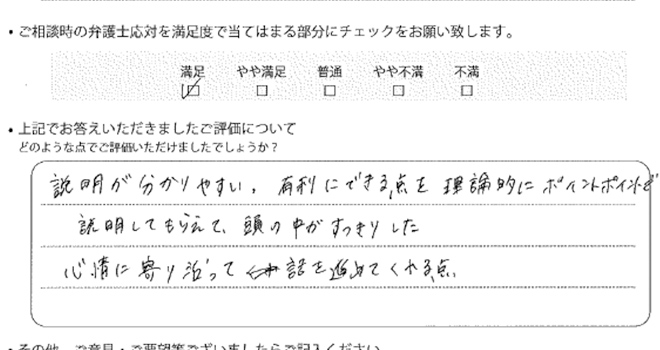 ・ご相談時の弁護士応対を満足度で当てはまる部分にチェックをお願い致します。
満足 やや満足 普通 やや不満 不満
☑ □ □ □ □
・上記でお答えいただきましたご評価について
どのような点でご評価いただけましたでしょうか？
説明が分かりやすい。有利にできる点を理論的にポイントポイントで
説明してもらえて、頭の中がすっきりした
心情に寄り沿って 話を進めてくれる点
・その他、ご意見・ご要望等ございましたらご記入ください